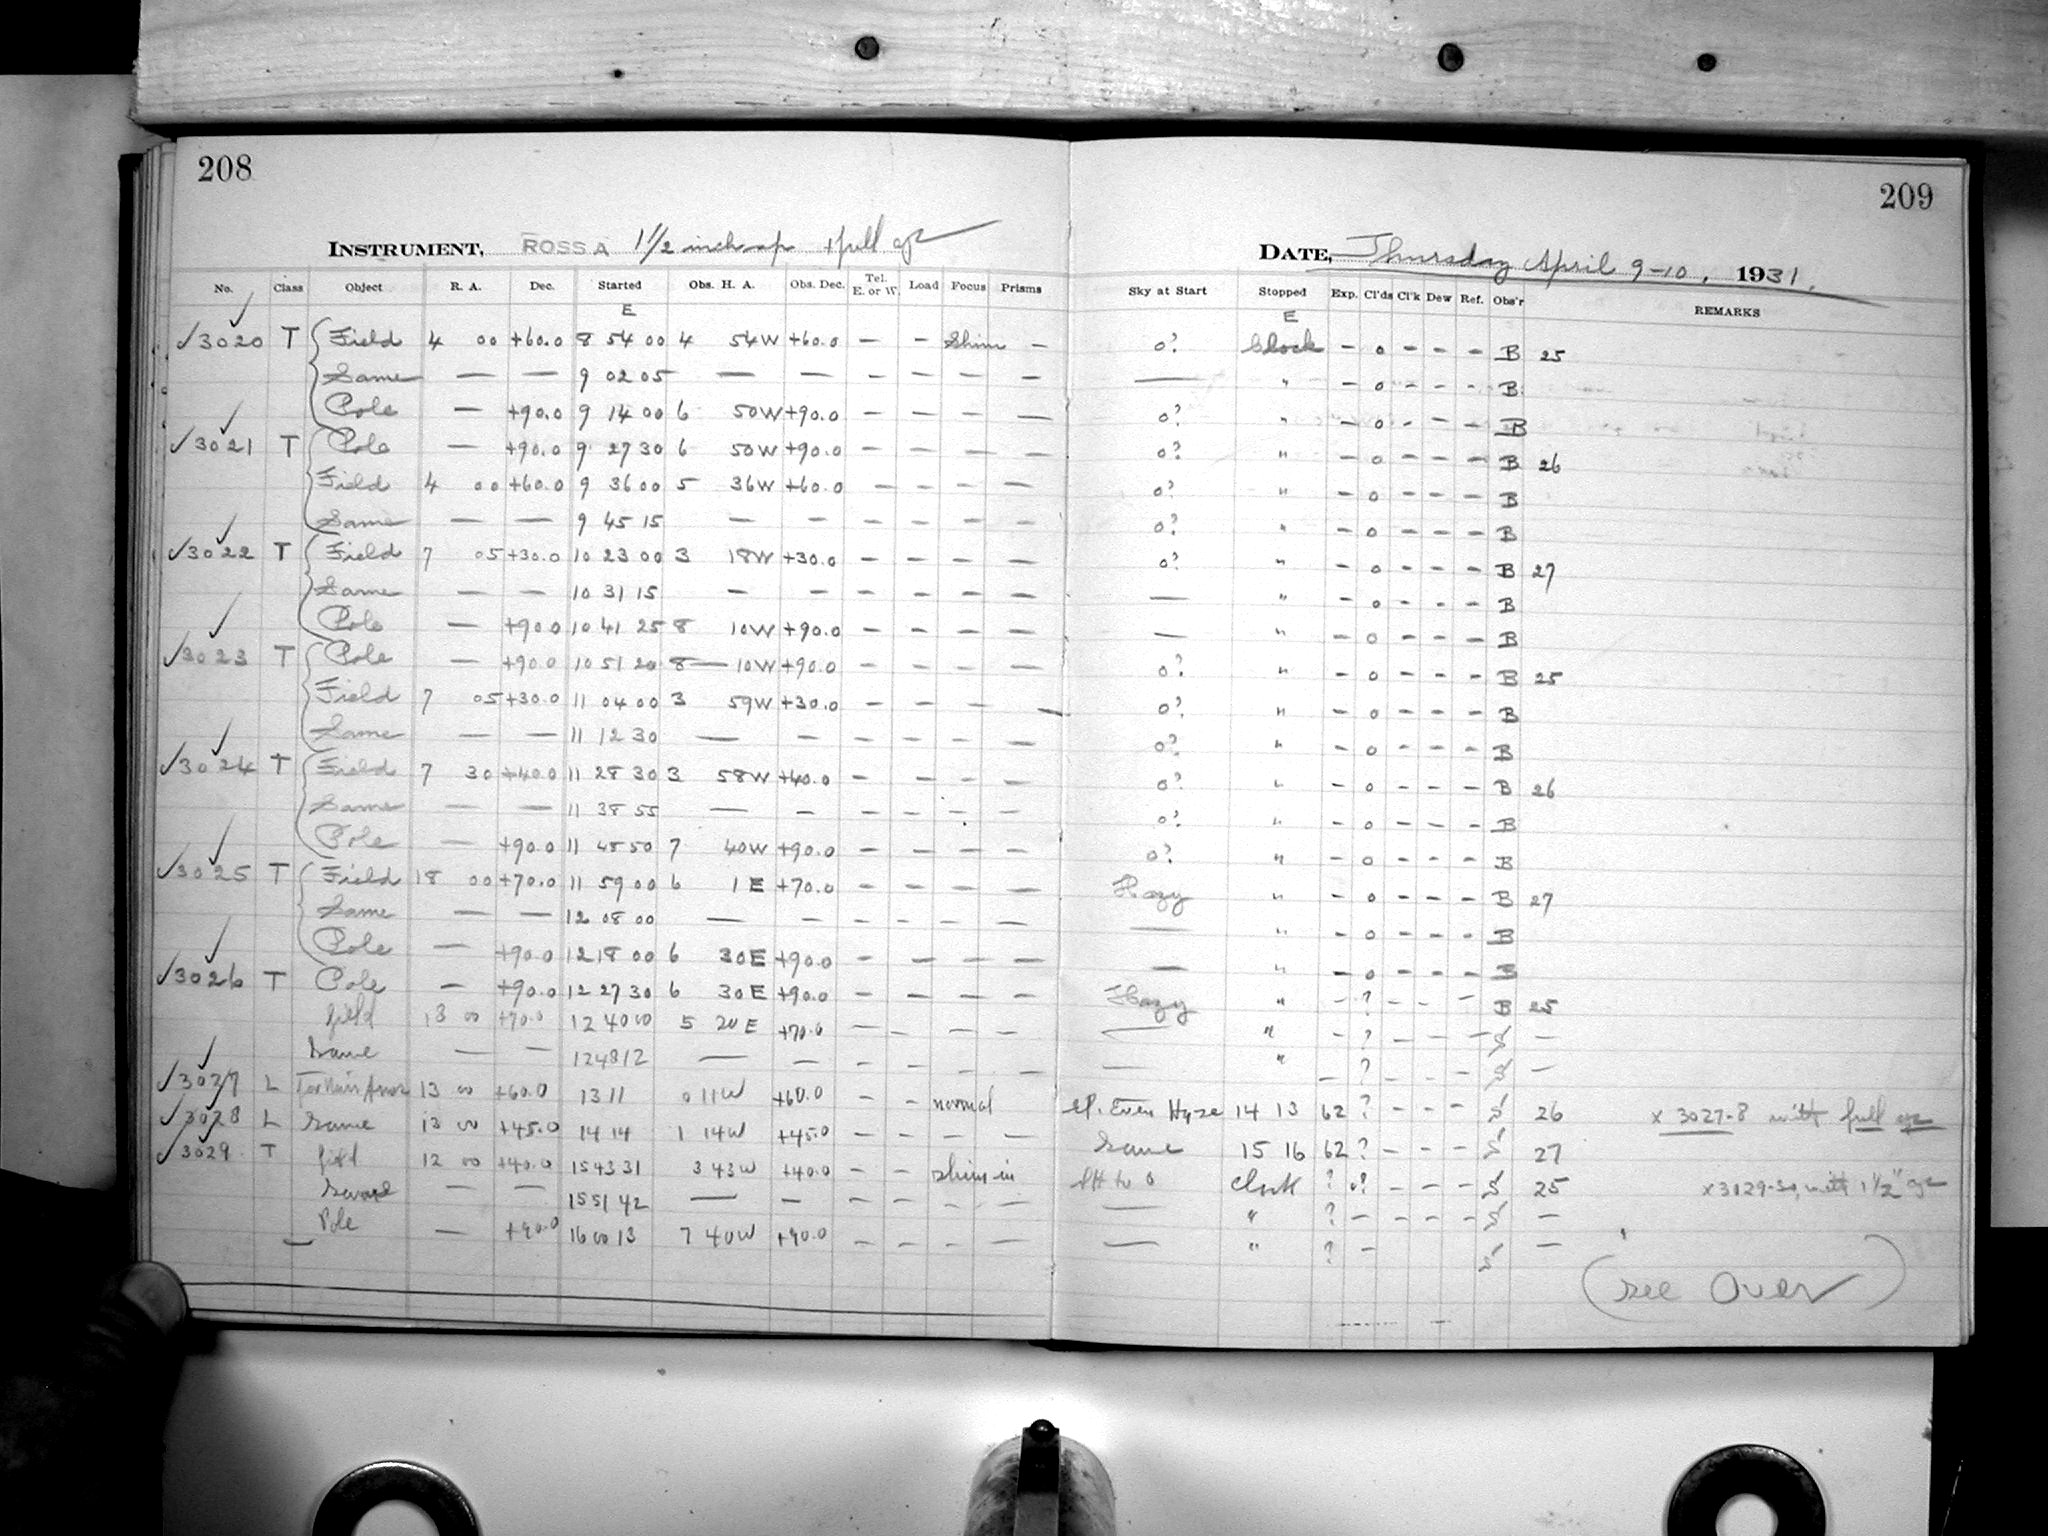 208
209
INSTRUMENT, ROSS A 1 1/2 inch ap + full ap
DATE, Thursday April 9-10, 1931.
No. Class Object R. A. Dec. Started Obs. H. A. Obs. Dec. Tel. E. or W. Load Focus Prisms Sky at Start Stopped Exp. Cl'ds Cl'k Dew Ref. Obs'r REMARKS
E E
✓3020 T Field 4 00 +60.0 8 54 00 4 54W +60.0 — — Shim — 0? Clock — 0 — — — B 25
Same — — 9 02 05 — — — — — — — " — 0 — — — B
Pole — +90.0 9 14 00 6 50W +90.0 — — — — 0? " — 0 — — — B
✓3021 T Pole — +90.0 9 27 30 6 50W +90.0 — — — — 0? " — 0 — — — B 26
Field 4 00 +60.0 9 36 00 5 36W +60.0 — — — — 0? " — 0 — — — B
Same — — 9 45 15 — — — — — — 0? " — 0 — — — B
✓3022 T Field 7 05 +30.0 10 23 00 3 18W +30.0 — — — — 0? " — 0 — — — B 27
Same — — 10 31 15 — — — — — — — " — 0 — — — B
Pole — +90.0 10 41 25 8 10W +90.0 — — — — — " — 0 — — — B
✓3023 T Pole — +90.0 10 51 20 8 — 10W +90.0 — — — — 0? " — 0 — — — B 25
Field 7 05 +30.0 11 04 00 3 59W +30.0 — — — — 0? " — 0 — — — B
Same — — 11 12 30 — — — — — — 0? " — 0 — — — B
✓3024 T Field 7 30 +40.0 11 28 30 3 58W +40.0 — — — — 0? " — 0 — — — B 26
Same — — 11 38 55 — — — — — — 0? " — 0 — — — B
Pole — +90.0 11 45 50 7 40W +90.0 — — — — 0? " — 0 — — — B
✓3025 T Field 18 00 +70.0 11 59 00 6 1 E +70.0 — — — — Hazy " — 0 — — — B 27
Same — — 12 08 00 — — — — — — — " — 0 — — — B
Pole — +90.0 12 18 00 6 30E +90.0 — — — — — " — 0 — — — B
✓3026 T Pole — +90.0 12 27 30 6 30E +90.0 — — — — Hazy " — ? — — — B 25
field 18 00 +70.0 12 40 00 5 20 E +70.0 — — — — — " — ? — — — —
Same — — 12 48 12 — — — — — — — " — ? — — — —
✓3027 L 13 00 +60.0 13 11 0 11W +60.0 — — normal Even Haze 14 13 62 ? — — — 26 x 3027-8 with full ap
✓3028 L Same 13 00 +45.0 14 14 1 14W +45.0 — — — — Same 15 16 62 ? — — — 27
✓3029 T field 12 00 +40.0 15 43 31 3 43W +40.0 — — shim in clock ? 0? — — — 25 x 3029-30, with 1 1/2" ap
Same — — 15 51 42 — — — — — — — " ? — — — — —
Pole — +90.0 16 00 13 7 40W +90.0 — — — — — " ? — —
(see Over)